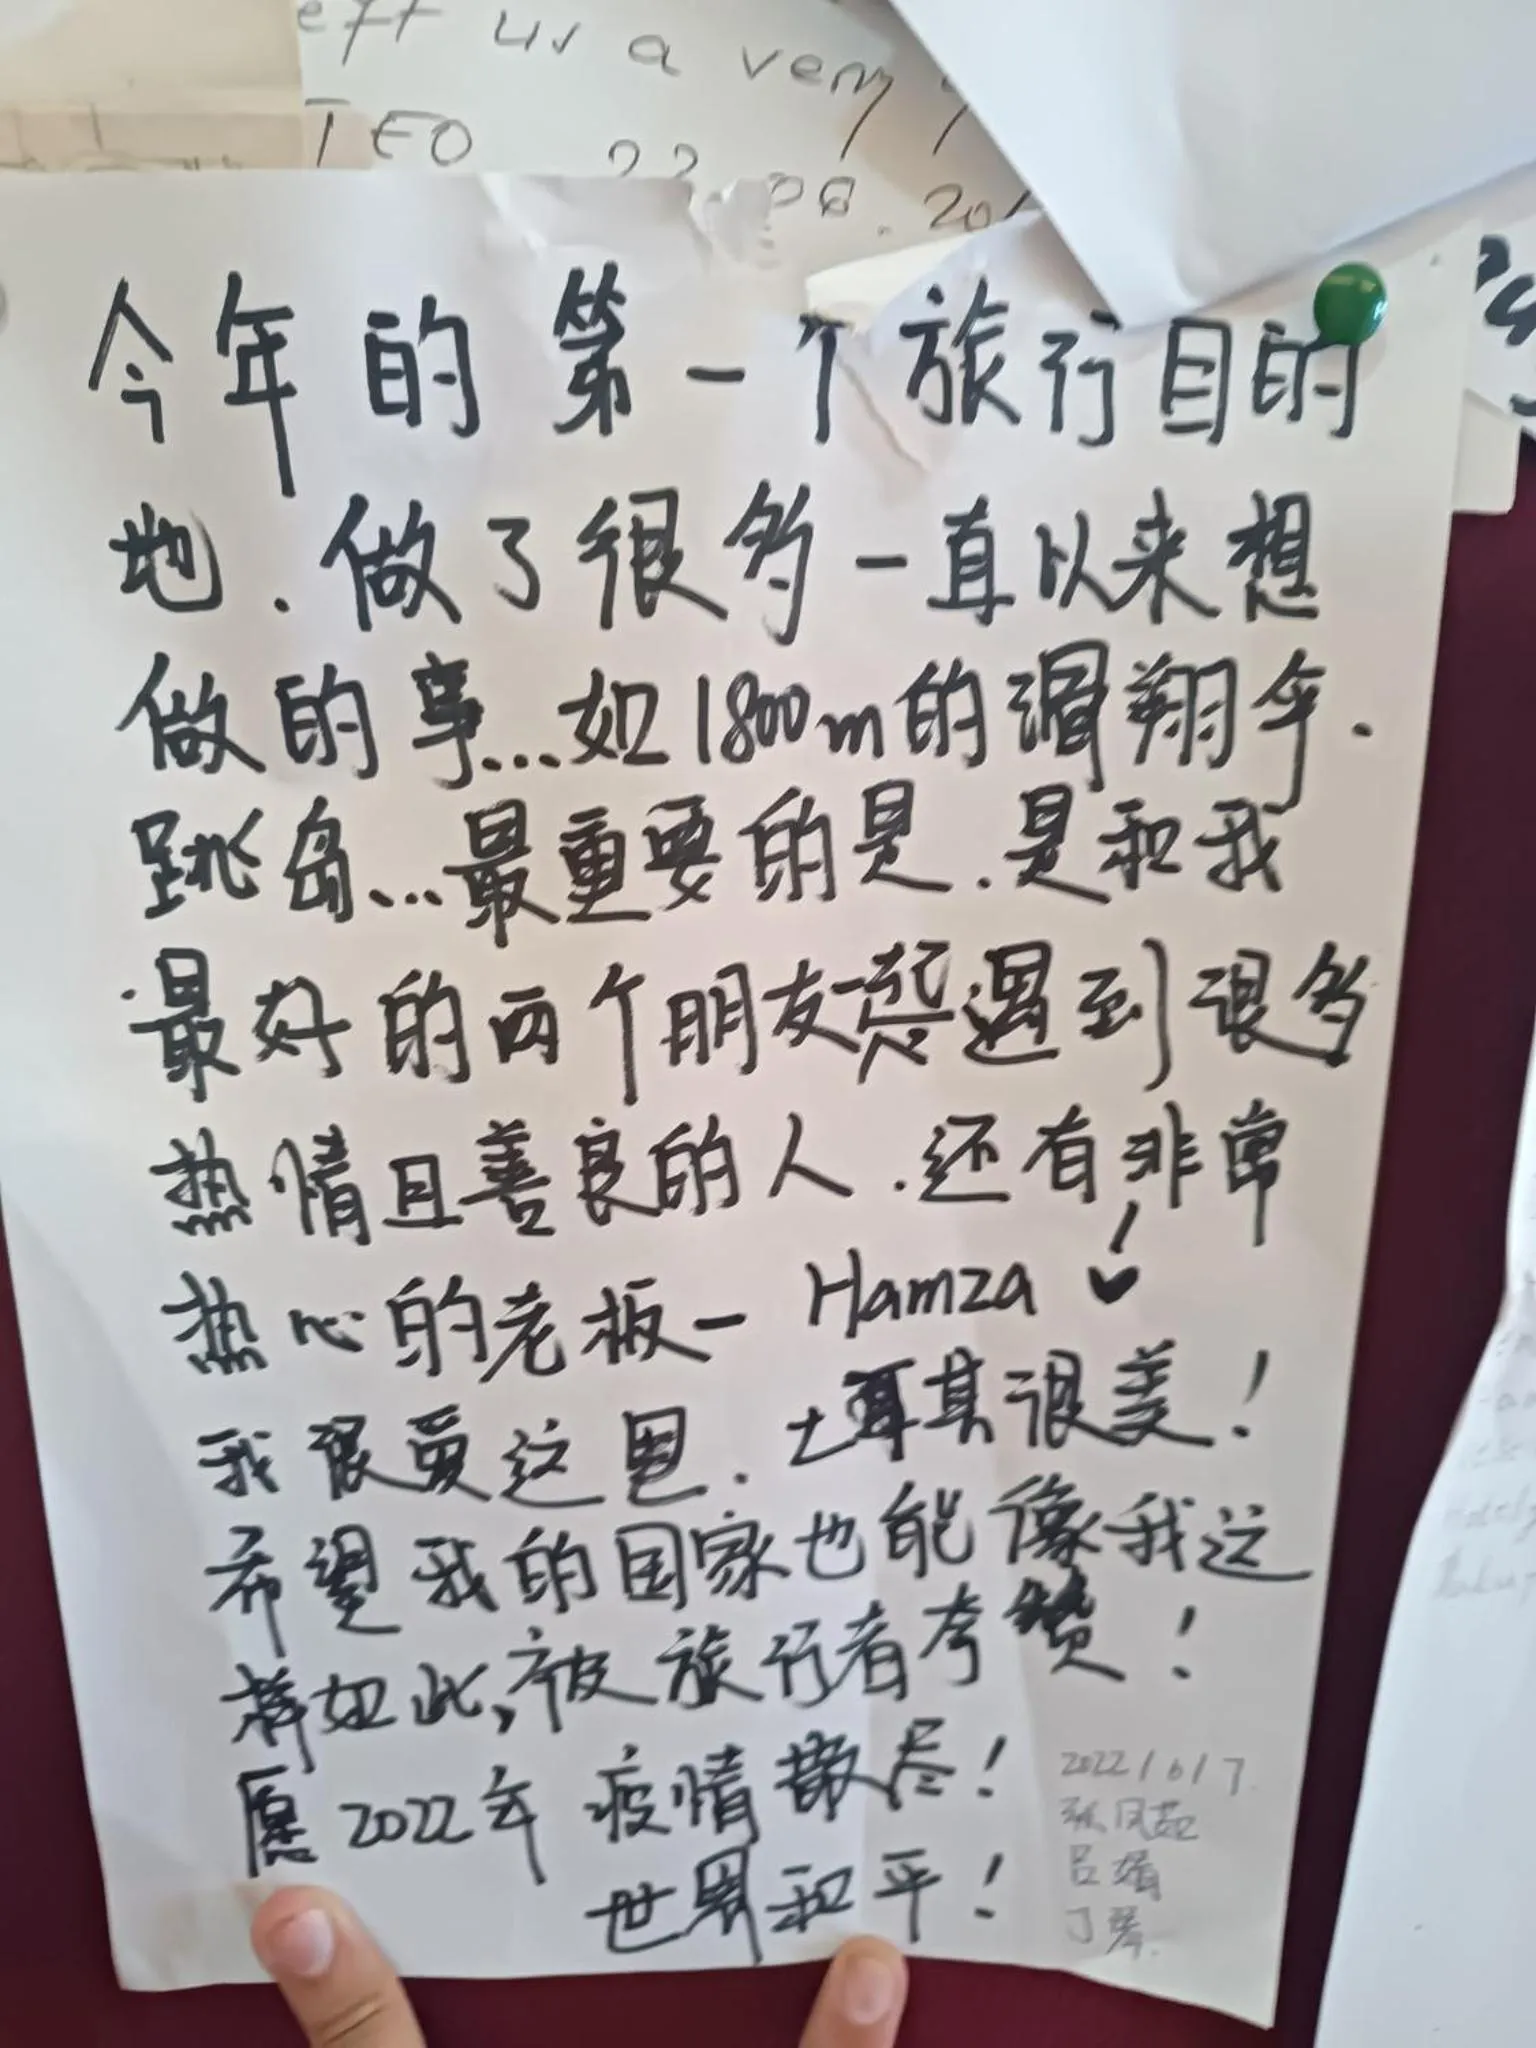 eft us a very
TEO 22.08.201
今年的第一个旅行目的
地.做了很多一直以来想
做的事...如1800m的滑翔伞.
跳岛...最重要的是.是和我
最好的两个朋友一起.遇到很多
热情且善良的人.还有非常
热心的老板— Hamza
我很爱这里.土耳其很美!
希望我的国家也能像我这
样如此,被旅行者夸赞!
愿2022年 疫情散尽!
世界和平!
2022/6/7.
张凤茹
吕娟
丁琴.